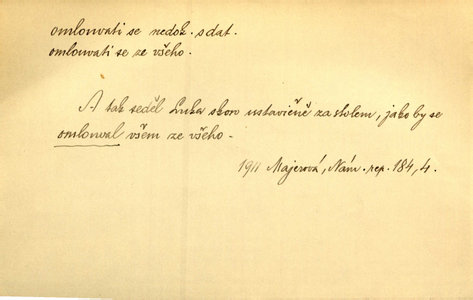 omlouvati se nedok. s dat.
omlouvati se ze všeho.
A tak seděl Luka skoro ustavičně za stolem, jako by se
omlouval všem ze všeho.
1911 Majerová, Nám. rep. 184,4.